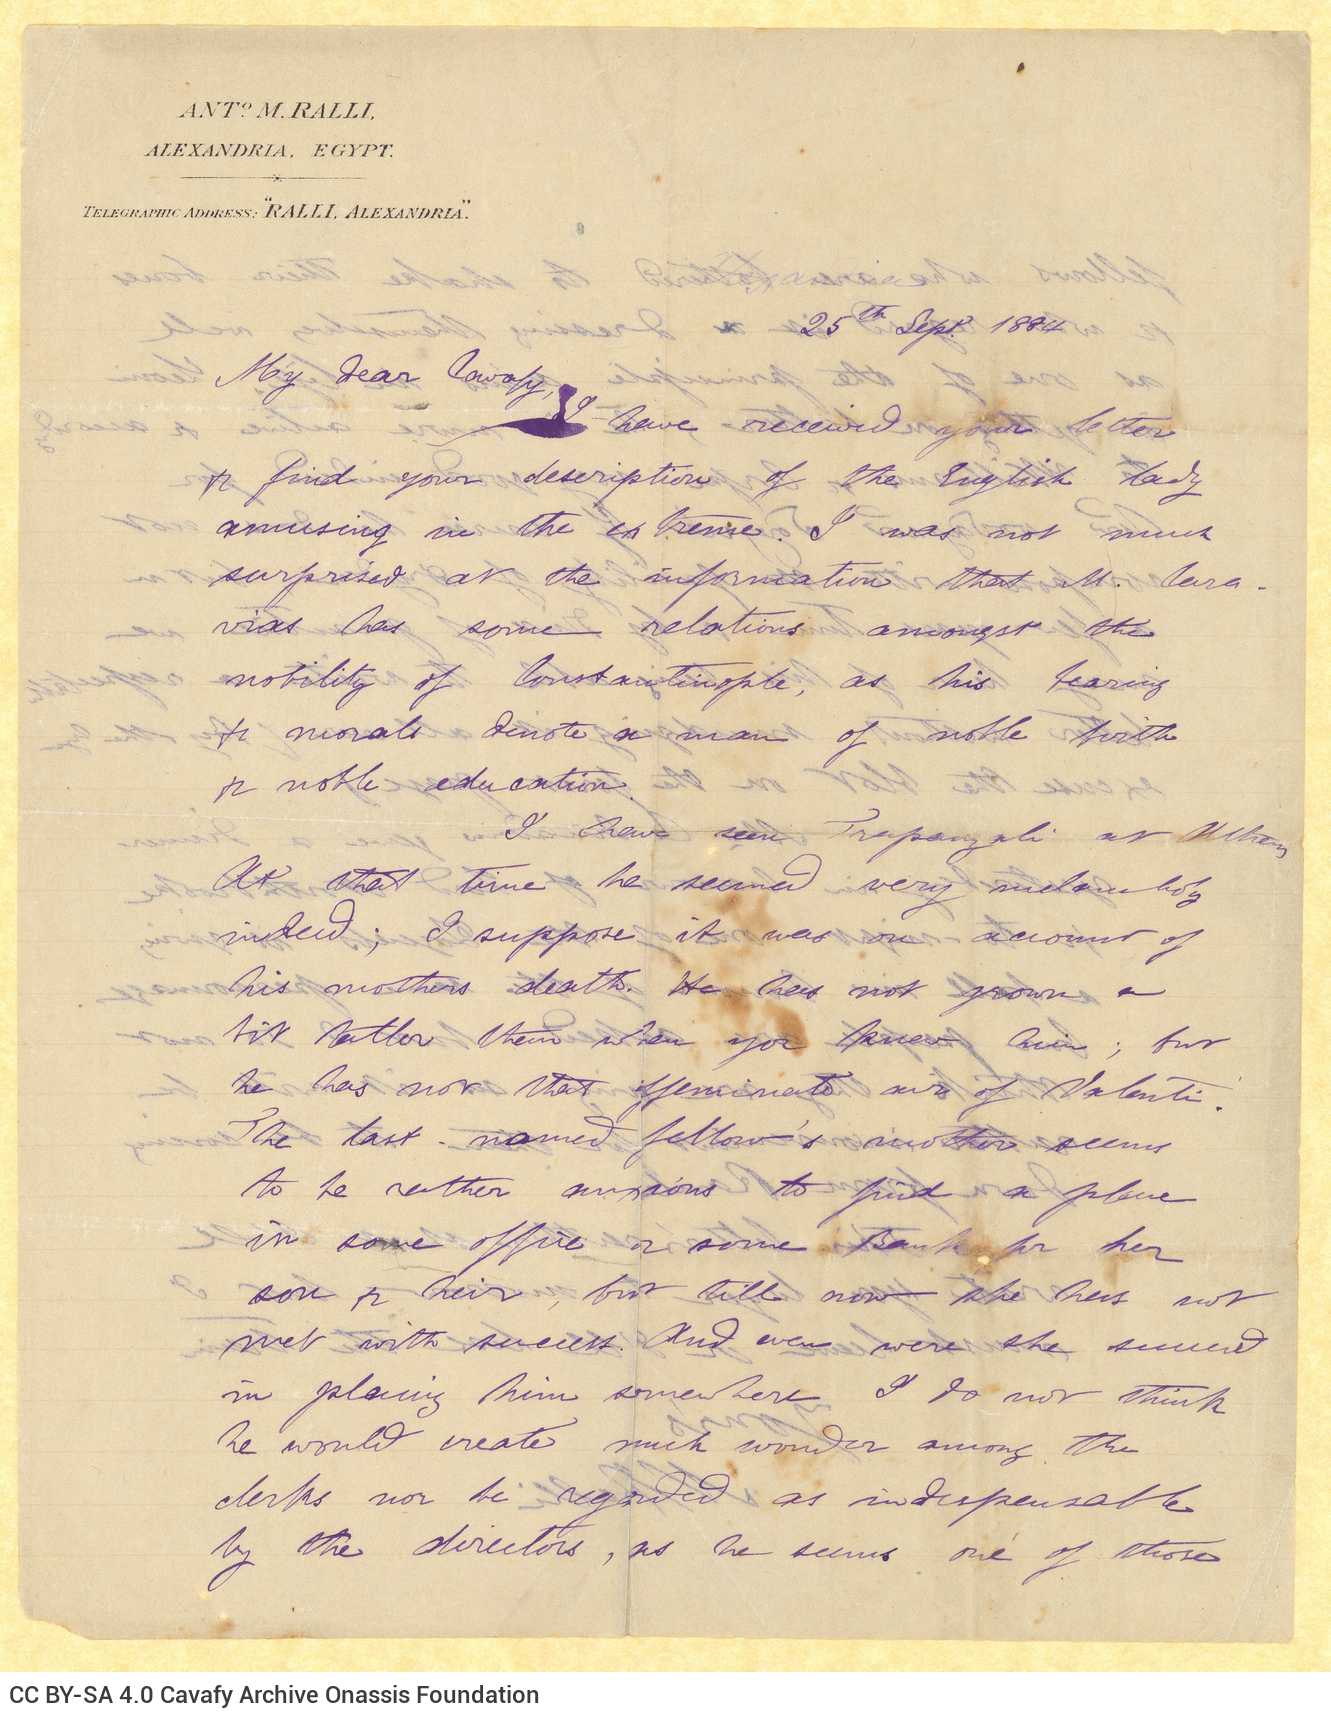 ANTº. M. RALLI,
ALEXANDRIA, EGYPT.
TELEGRAPHIC ADDRESS: "RALLI, ALEXANDRIA".
25th Sept. 1884
My dear Cavafy,
I have received your letter
& find your description of the English lady
amusing in the extreme. I was not much
surprised at the information that M. Cara-
vias has some relations amongst the
nobility of Constantinople, as his bearing
& morals denote a man of noble birth
& noble education.
I have seen Trapanzali at Athens
At that time he seemed very melancholy
indeed; I suppose it was on account of
his mothers death. He has not grown a
bit taller than when you knew him; but
he has not that effeminate air of Valenti.
The last-named fellow's mother seems
to be rather anxious to find a place
in some office or some Bank for her
son & heir, but till now she has not
met with success. And even were she succeed
in placing him somewhere I do not think
he would create much wonder among the
clerks nor be regarded as indespensable
by the directors, as he seems one of those
CC BY-SA 4.0 Cavafy Archive Onassis Foundation